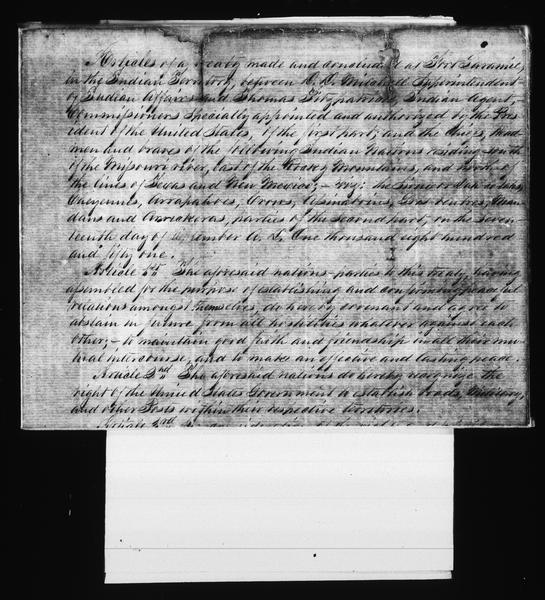 Articles of a treaty made and concluded at Fort Laramie,
in the Indian Territory, between D. D. Mitchell Superintendent
of Indian Affairs and Thomas Fitzpatrick, Indian Agent, –
Commissioners specially appointed and authorized by the Pres-
ident of the United States, of the first part, and the Chiefs, Head-
men and braves of the following Indian Nations residing South
of the Missouri river, East of the Rocky Mountains, and North of
the lines of Texas and New Mexico; – viz: the Sioux or Dahcotahs,
Cheyennes, Arrapahoes, Crows, Assinaboines, Gros-Ventres, Man-
dans and Arrickaras, parties of the second part, on the Seven-
teenth day of September A. D. One thousand eight hundred
and fifty one.
Article 1st The aforesaid nations – parties to this treaty, having
assembled for the purpose of establishing and confirming peaceful
relations amongst themselves, do hereby covenant and agree to
abstain in future from all hostilities whatever against each
other; – to maintain good faith and friendship in all their mu-
tual intercourse, and to make an effective and lasting peace.
Article 2nd The aforesaid nations do hereby recognize the
right of the United States Government to establish roads, Military,
and other Posts within their respective territories.
Article 3rd